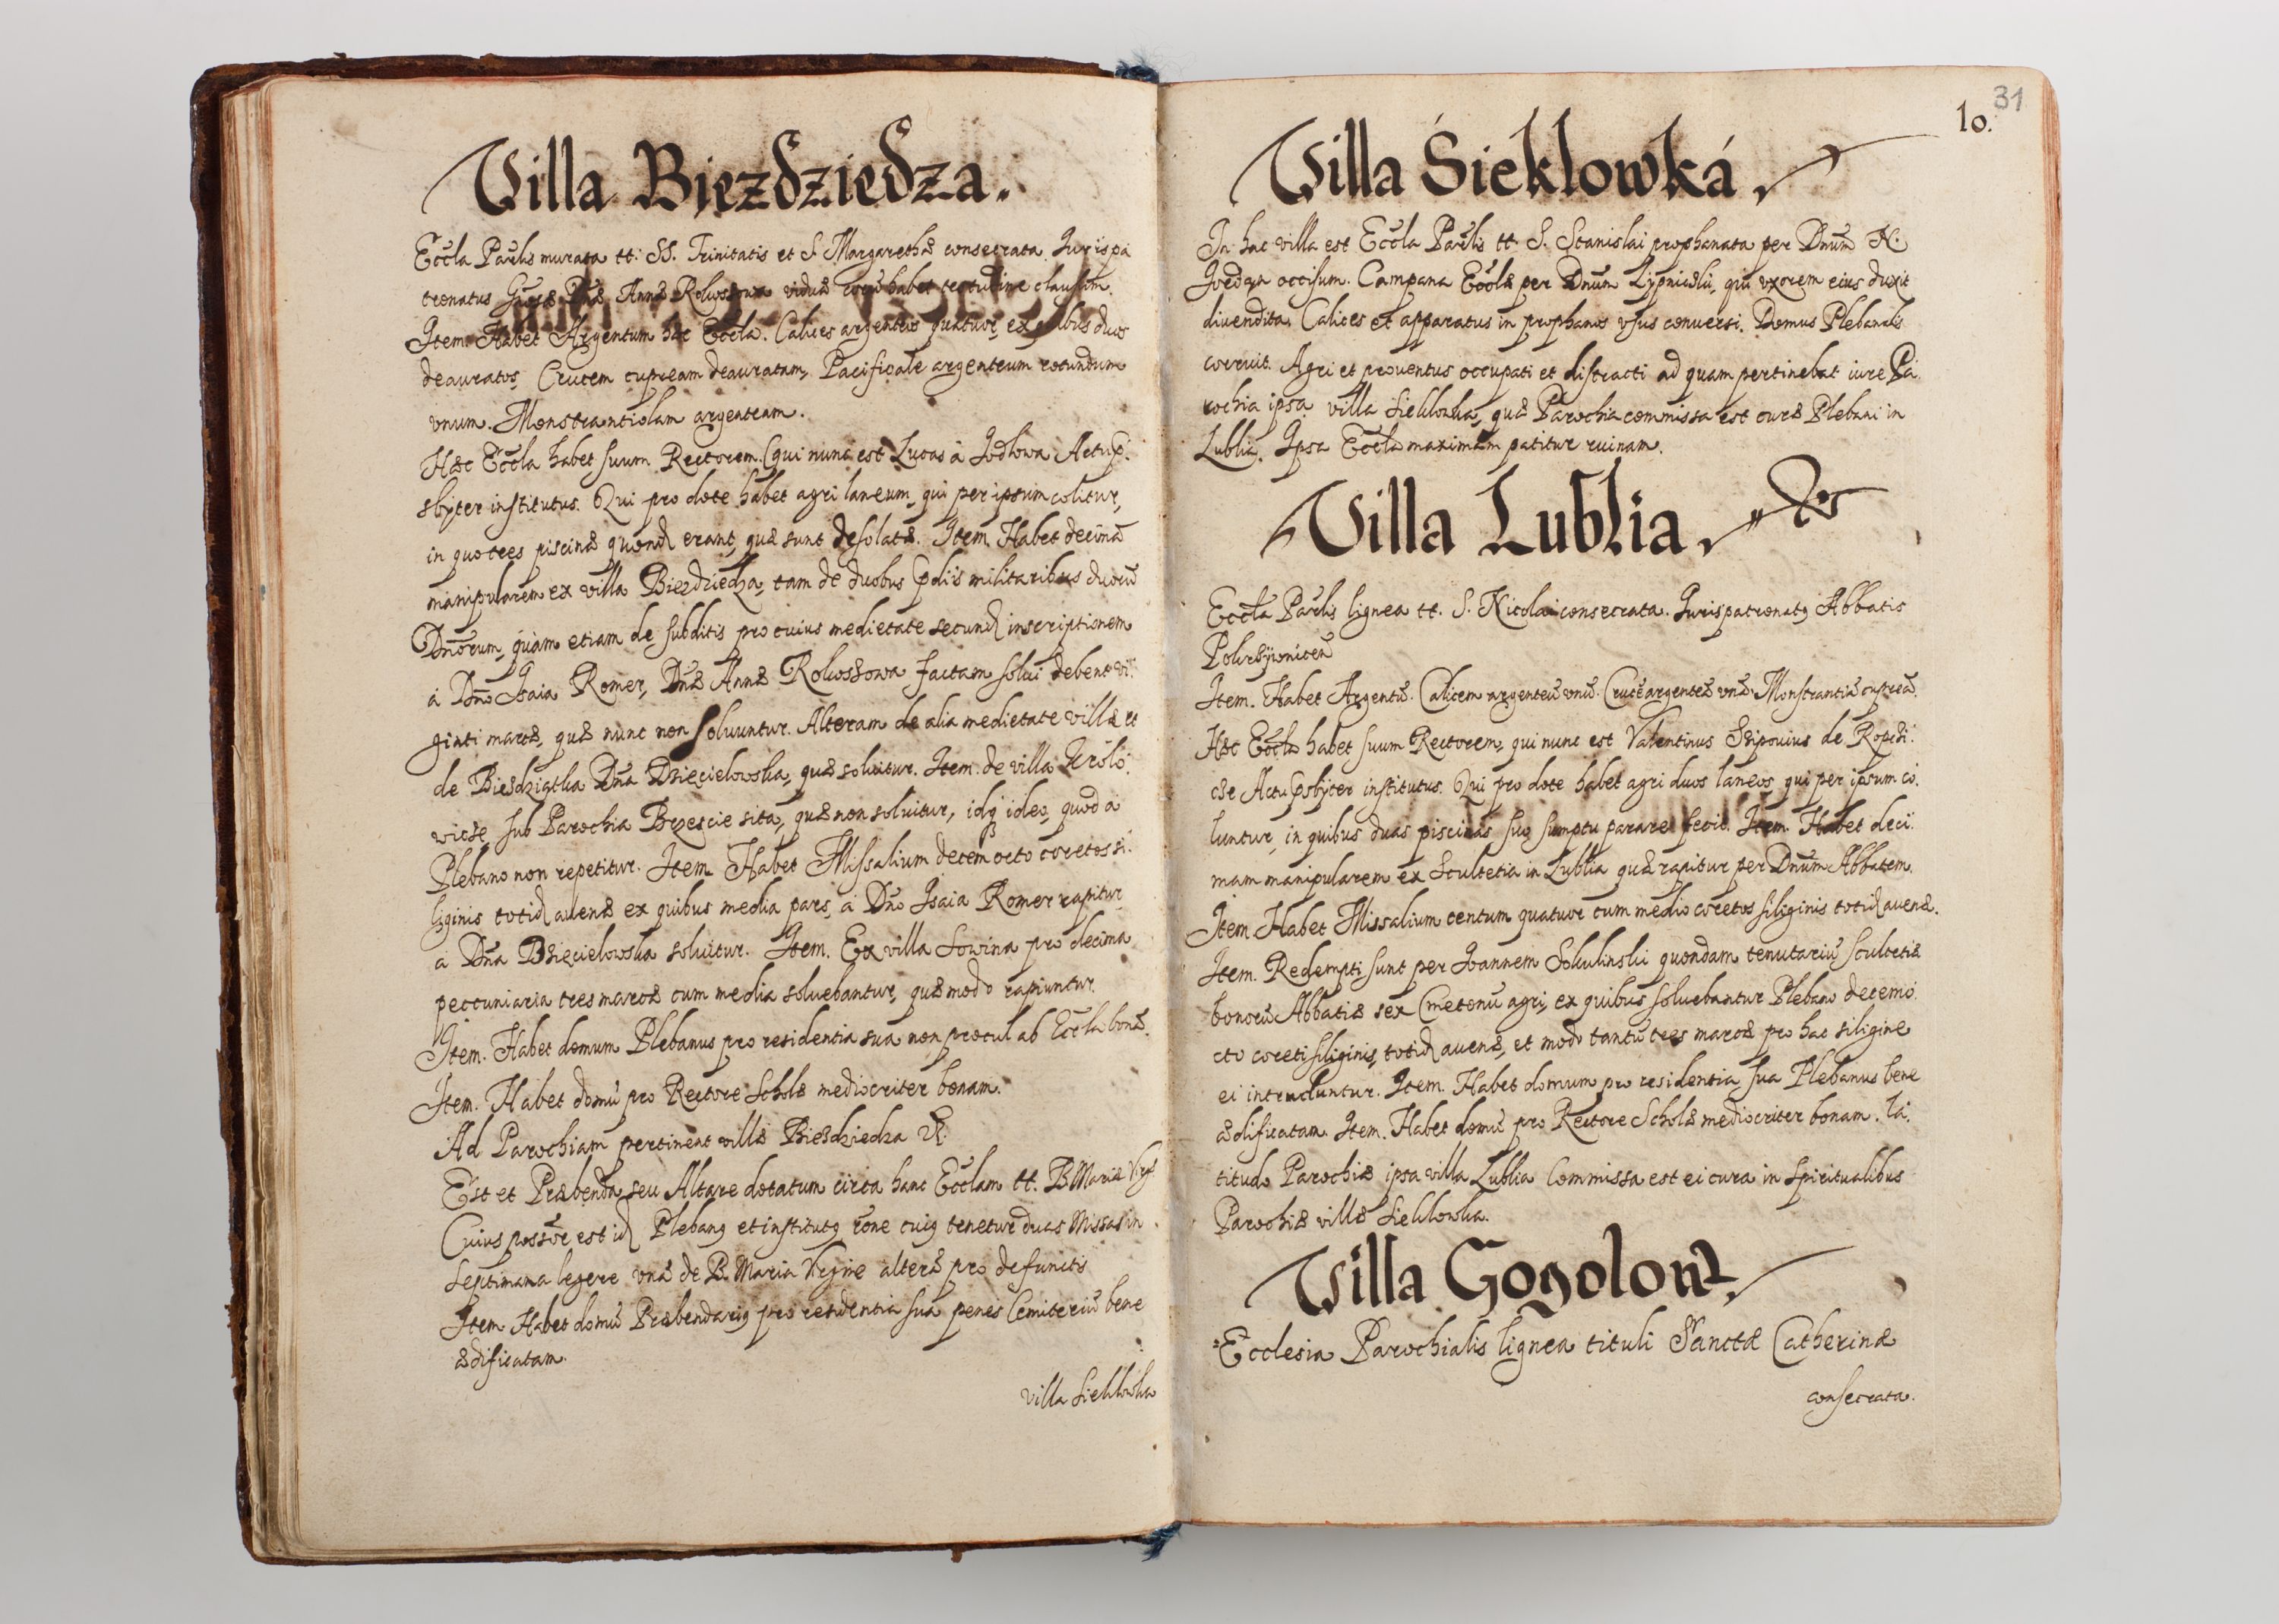 Villa Biezdziedza.
Eccła Parlis murata tt: SS. Trinitatis et S. Margarethæ consecrata. Jurispa
tronatus Annæ Rokossowa viduæ habet testudine clausum.
Item. Habet Argentum hæc Eccła. Calices argenteos quatuor, ex quibus duos
deauratos, Crucem cupream deauratam, Pacificale argenteum rotundum
vnum. Monstrantiolam argenteam.
Hæc Eccła habet suum Rectorem. (qui nunc est Lucas à Jodlowa Actu p̃.
sbyter institutus. Qui pro dote habet agri laneum, qui per ipsum colitur,
in quo tres piscinæ quond erant, quæ sunt desolatæ. Item. Habet decimã
manipularem ex villa Biezdziedza, tam de duobus pdiis militaribus duorũ
Dnorum, quàm etiam de subditis pro cuius medietate secund inscriptionem
à Dno Isaia Romer, Dnæ Annæ Rokossowa factam solui debent vi.
ginti marcæ, quæ nunc non soluuntur. Alteram de alia medietate villæ et
de Biesdziatka Dna Dzięcielowska, quæ soluitur. Item. de villa Krolo.
wicse, sub Parochia Brzescie sita, quæ non soluitur, idq ideo, quod à
Plebano non repetitur. Item. Habet Missalium decem octo coretos si.
liginis totid auenæ ex quibus media pars, à Dno Isaia Romer rapitur,
a Dna Dzięcielowska soluitur. Item. Ex villa Sowina pro decima
peccuniaria tres marcæ cum media soluebantur, quæ modo rapiuntur.
Item. Habet domum Plebanus pro residentia sua non procul ab Eccła bonã.
Item. Habet domũ pro Rectore Scholæ mediocriter bonam.
Ad Parochiam pertinent villæ Biesdziedza
Est et Præbenda, seu Altare dotatum circa hanc Ecclam tt. B. Mariæ Virg.
Cuius possor est id Plebang et institutg rone cuig tenetur duas Missas in
Septimana legere vnã de B. Maria Virgine alterã pro defunctis
Item Habet domũ Præbendarig pro residentia sua penes Cemiteriũ bene
ædificatam.
villa Sieklowka
31
10.
Villa Śieklowká.
In hac villa est Eccła Parlis tt. S. Stanislai prophanata per Dnum N.
occisum. Campana Ecclæ per Dnum Lipnicki, qui vxorem eius duxit
diuendita, Calices et apparatus in prophanos vsus conuersi. Domus Plebanalis
corruit. Agri et prouentus occupati et distracti ad quam pertinebat iure Pa.
rochia ipsa villa Sieklowka, quæ Parochia commissa est curæ Plebani in
Lublia. Ipsa Eccła maximam patitur ruinam.
Villa Lublia.
Eccła Parlis lignea tt. S. Nicolai consecrata. Jurispatronatg Abbatis
Item. Habet Argentũ. Calicem argenteũ vnũ. Crucẽ argenteã vnã. Monstrantiã cupreã.
Hæc Eccła habet suum Rectorem, qui nunc est Valentinus de
Actu psbyter institutus. Qui pro dote habet agri duos laneos, qui per ipsum co.
luntur, in quibus duas piscinas suo sumptu parare fecit. Item. Habet deci.
mam manipularem ex Scultetia in Lublia quæ rapitur per Dnum Abbatem.
Item. Habet Missalium centum quatuor cum medio coretos siliginis totid auenæ.
Item. Redempti sunt per Joannem quondam tenutariũ Scultetiæ
bonorũ Abbatiæ sex Cmetonũ agri, ex quibus soluebantur Plebano decem o.
cto coreti siliginis, totid auenæ, et modo tantũ tres marcæ pro hac siligine
ei intruduntur. Item. Habet domum pro residentia sua Plebanus bene
ædificatam. Item. Habet domũ pro Rectore Scholæ mediocriter bonam. La.
titudo Parochiæ ipsa villa Lublia Commissa est ei cura in Spiritualibus
Parochiæ villæ Sieklowka.
Villa Gogolow
Ecclesia Parochialis lignea tituli Sanctæ Catherinæ
consecrata.